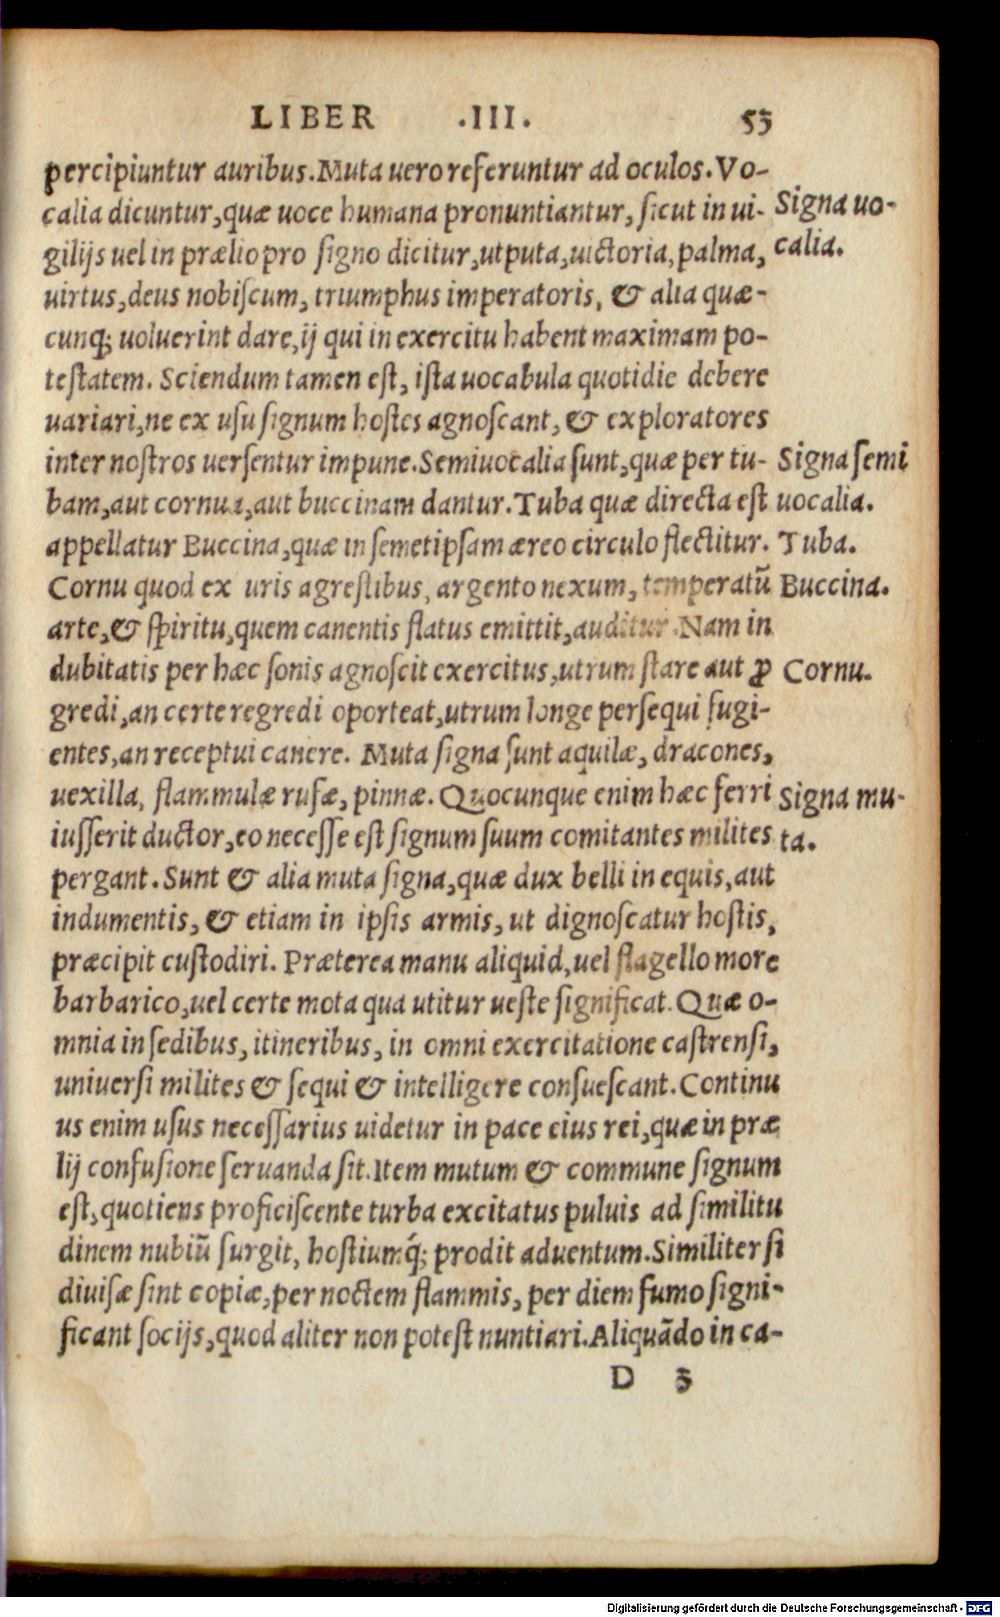 LIBER .III. 53
percipiuntur auribus. Muta uero referuntur ad oculos. Vo-
calia dicuntur, quæ uoce humana pronuntiantur, sicut in ui-
Signa uo-
gilijs uel in prælio pro signo dicitur, utputa, uictoria, palma,
calia.
uirtus, deus nobiscum, triumphus imperatoris, & alia quæ-
cunq; uoluerint dare, ij qui in exercitu habent maximam po-
testatem. Sciendum tamen est, ista uocabula quotidie debere
uariari, ne ex usu signum hostes agnoscant, & exploratores
inter nostros uersentur impune. Semiuocalia sunt, quæ per tu-
Signa semi
bam, aut cornua, aut buccinam dantur. Tuba quæ directa est
uocalia.
appellatur Buccina, quæ in semetipsam æreo circulo flectitur.
Tuba.
Cornu quod ex uris agrestibus, argento nexum, temperatū
Buccina.
arte, & spiritu, quem canentis flatus emittit, auditur. Nam in
dubitatis per hæc sonis agnoscit exercitus, utrum stare aut ꝓ
Cornu.
gredi, an certe regredi oporteat, utrum longe persequi fugi-
entes, an receptui canere. Muta signa sunt aquilæ, dracones,
uexilla, flammulæ rufæ, pinnæ. Quocunque enim hæc ferri
Signa mu-
iusserit ductor, eo necesse est signum suum comitantes milites
ta.
pergant. Sunt & alia muta signa, quæ dux belli in equis, aut
indumentis, & etiam in ipsis armis, ut dignoscatur hostis,
præcipit custodiri. Præterea manu aliquid, uel flagello more
barbarico, uel certe mota qua utitur ueste significat. Quæ o-
mnia in sedibus, itineribus, in omni exercitatione castrensi,
uniuersi milites & sequi & intelligere consuescant. Continu
us enim usus necessarius uidetur in pace eius rei, quæ in præ
lij confusione seruanda sit. Item mutum & commune signum
est, quotiens proficiscente turba excitatus puluis ad similitu
dinem nubiū surgit, hostiumq́; prodit aduentum. Similiter si
diuisæ sint copiæ, per noctem flammis, per diem fumo signi-
ficant socijs, quod aliter non potest nuntiari. Aliquādo in ca-
D 3
Digitalisierung gefördert durch die Deutsche Forschungsgemeinschaft - DFG